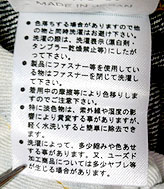 MADE IN JAPAN
● 色落ちする場合がありますので他
の物と同時洗濯はお避け下さい。
● 洗濯の際は、洗濯表示(漂白剤・
タンブラー乾燥禁止等)にしたがっ
て下さい。
● 製品にファスナー等を使用してい
る物はファスナーを閉じて洗濯し
て下さい。
● 着用中の摩擦等により色移りしま
すのでご注意下さい。
● 特に淡色物は、紫外線や湿度の影
響により黄変する事がありますが、
軽く水洗いすると簡単に除去でき
ます。
● 洗濯によって、多少縮みや色あせ
する事があります。又、ユーズド
加工商品については多少ヤブレ等
が生じる場合があります。